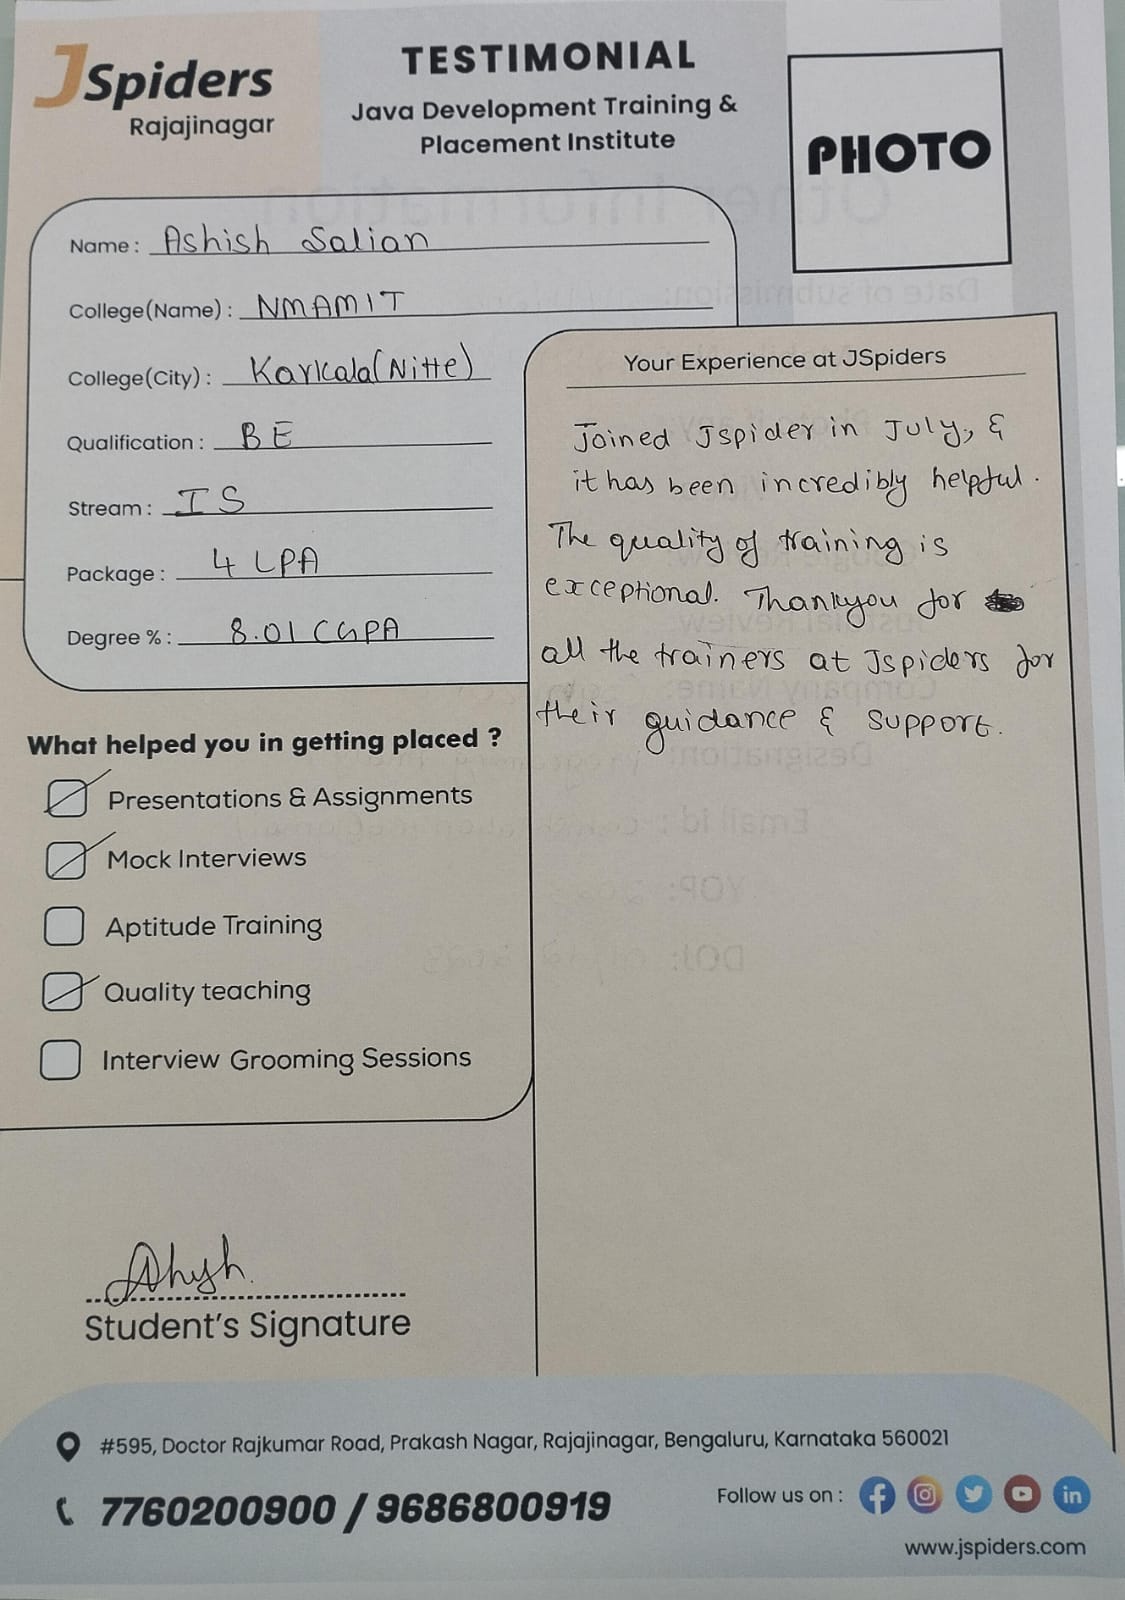 JSpiders
Rajajinagar
TESTIMONIAL
Java Development Training &
Placement Institute
PHOTO
Name : Ashish Salian
College(Name) : NMAMIT
College(City) : Karkala(Nitte)
Qualification : BE
Stream : IS
Package : 4 LPA
Degree % : 8.01 CGPA
Your Experience at JSpiders
Joined Jspider in July, &
it has been incredibly helpful.
The quality of training is
exceptional. Thankyou for
all the trainers at Jspiders for
their guidance & support.
What helped you in getting placed ?
Presentations & Assignments
Mock Interviews
Aptitude Training
Quality teaching
Interview Grooming Sessions
Student's Signature
#595, Doctor Rajkumar Road, Prakash Nagar, Rajajinagar, Bengaluru, Karnataka 560021
7760200900 / 9686800919
Follow us on :
www.jspiders.com